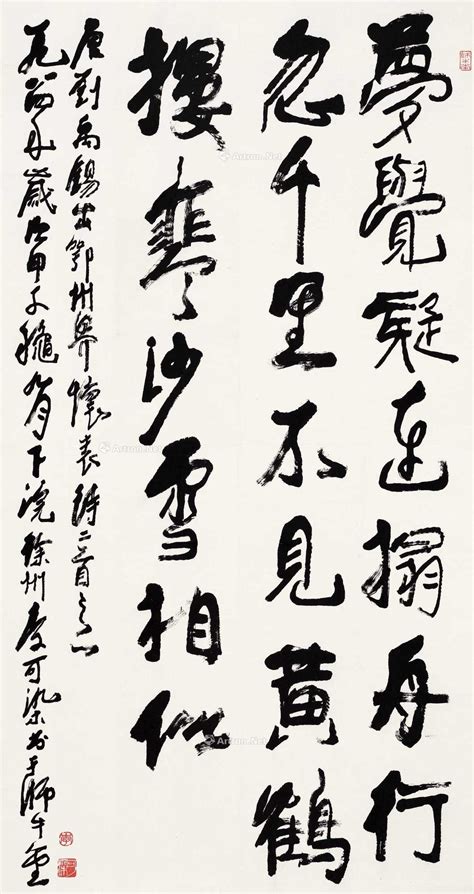 夢覺疑連榻舟行
忽千里不見黃鶴
樓寒沙雪相似
唐劉禹錫出鄂州界懷表臣詩二首之一
歲次甲子穐九月下浣徐州李可染於師牛堂
Artron.Net